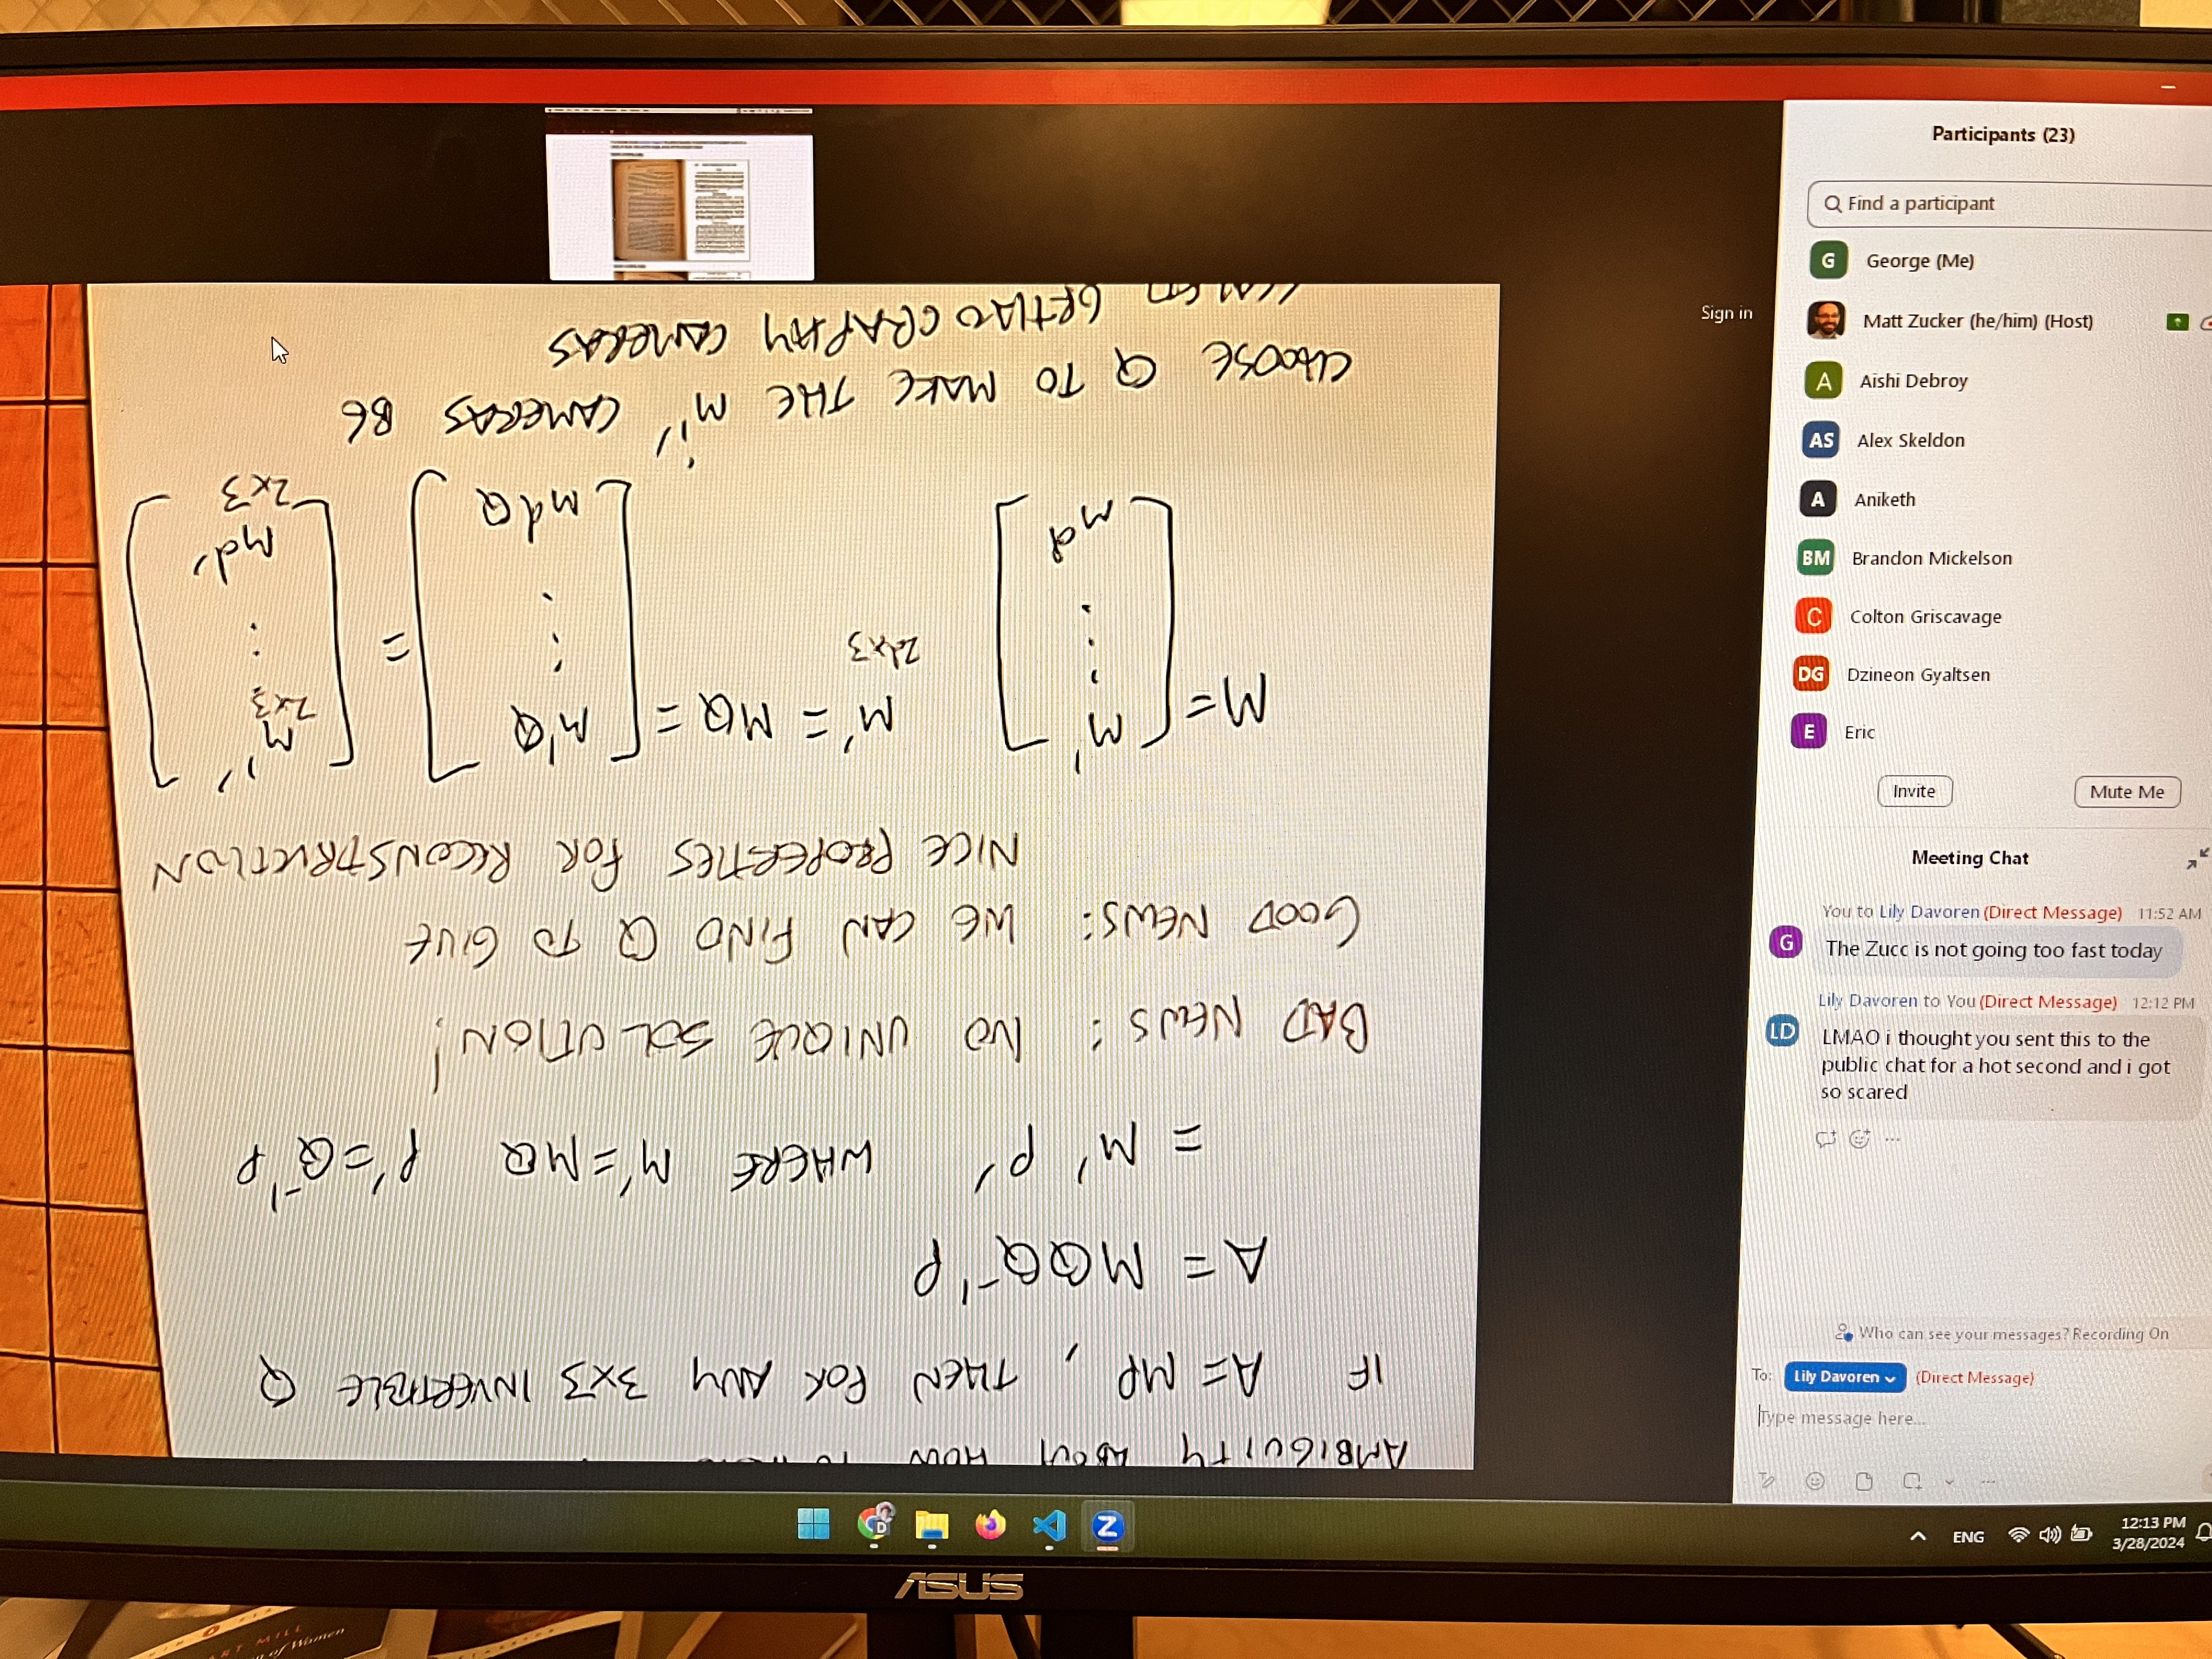 AMBIGUITY ABOUT HOW TO
IF A = MP, THEN FOR ANY 3x3 INVERTIBLE Q
A = MQQ⁻¹P
= M' P' WHERE M' = MQ P' = Q⁻¹P
BAD NEWS: NO UNIQUE SOLUTION!
GOOD NEWS: WE CAN FIND Q TO GIVE
NICE PROPERTIES FOR RECONSTRUCTION
M = [ M¹ ⋮ Md ] M' = MQ = [ M¹Q ⋮ MdQ ] = [ M¹' ⋮ Md' ]
2dx3 2x3 2x3
CHOOSE Q TO MAKE THE Mⁱ' CAMERAS BE
CAMERAS
Sign in
Participants (23)
Find a participant
G George (Me)
Matt Zucker (he/him) (Host)
A Aishi Debroy
AS Alex Skeldon
A Aniketh
BM Brandon Mickelson
C Colton Griscavage
DG Dzineon Gyaltsen
E Eric
Invite Mute Me
Meeting Chat
You to Lily Davoren (Direct Message) 11:52 AM
G The Zucc is not going too fast today
Lily Davoren to You (Direct Message) 12:12 PM
LD LMAO i thought you sent this to the
public chat for a hot second and i got
so scared
Who can see your messages? Recording On
To: Lily Davoren (Direct Message)
Type message here...
D
Z
ENG
12:13 PM
3/28/2024
ASUS
ART MILL
of Women